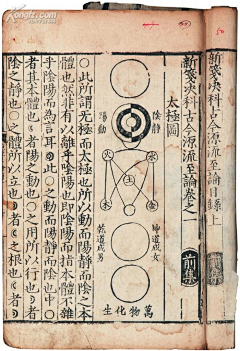 新箋决科古今源流至論
上
新箋决科古今源流至論卷之一
前集
太極圖
陰靜
陽動
火 水
土
木 金
坤道成女
乾道成男
萬物化生
○此所謂無極而太極也所以動而陽靜而陰之本
體也然非有以離乎陰陽也即陰陽而指本體不雜
乎陰陽而為言耳 此○之動而陽靜而陰也中○
者其本體也 者陽之動也○之用所以行也 者
陰之靜也○之體所以立也 者 之根也 者